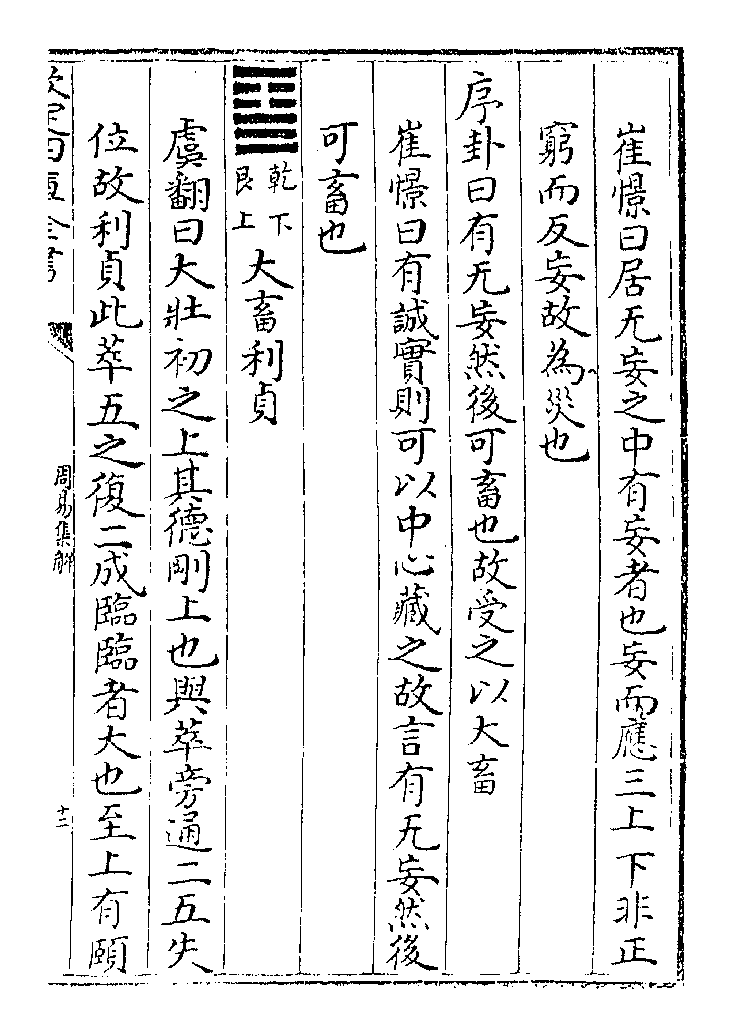 崔憬曰居无妄之中有妄者也妄而應三上下非正
窮而反妄故為災也
序卦曰有无妄然後可畜也故受之以大畜
崔憬曰有誠實則可以中心藏之故言有无妄然後
可畜也
乾下
艮上
大畜利貞
虞翻曰大壯初之上其德剛上也與萃旁通二五失
位故利貞此萃五之復二成臨臨者大也至上有頤
欽定四庫全書
周易集解
十三